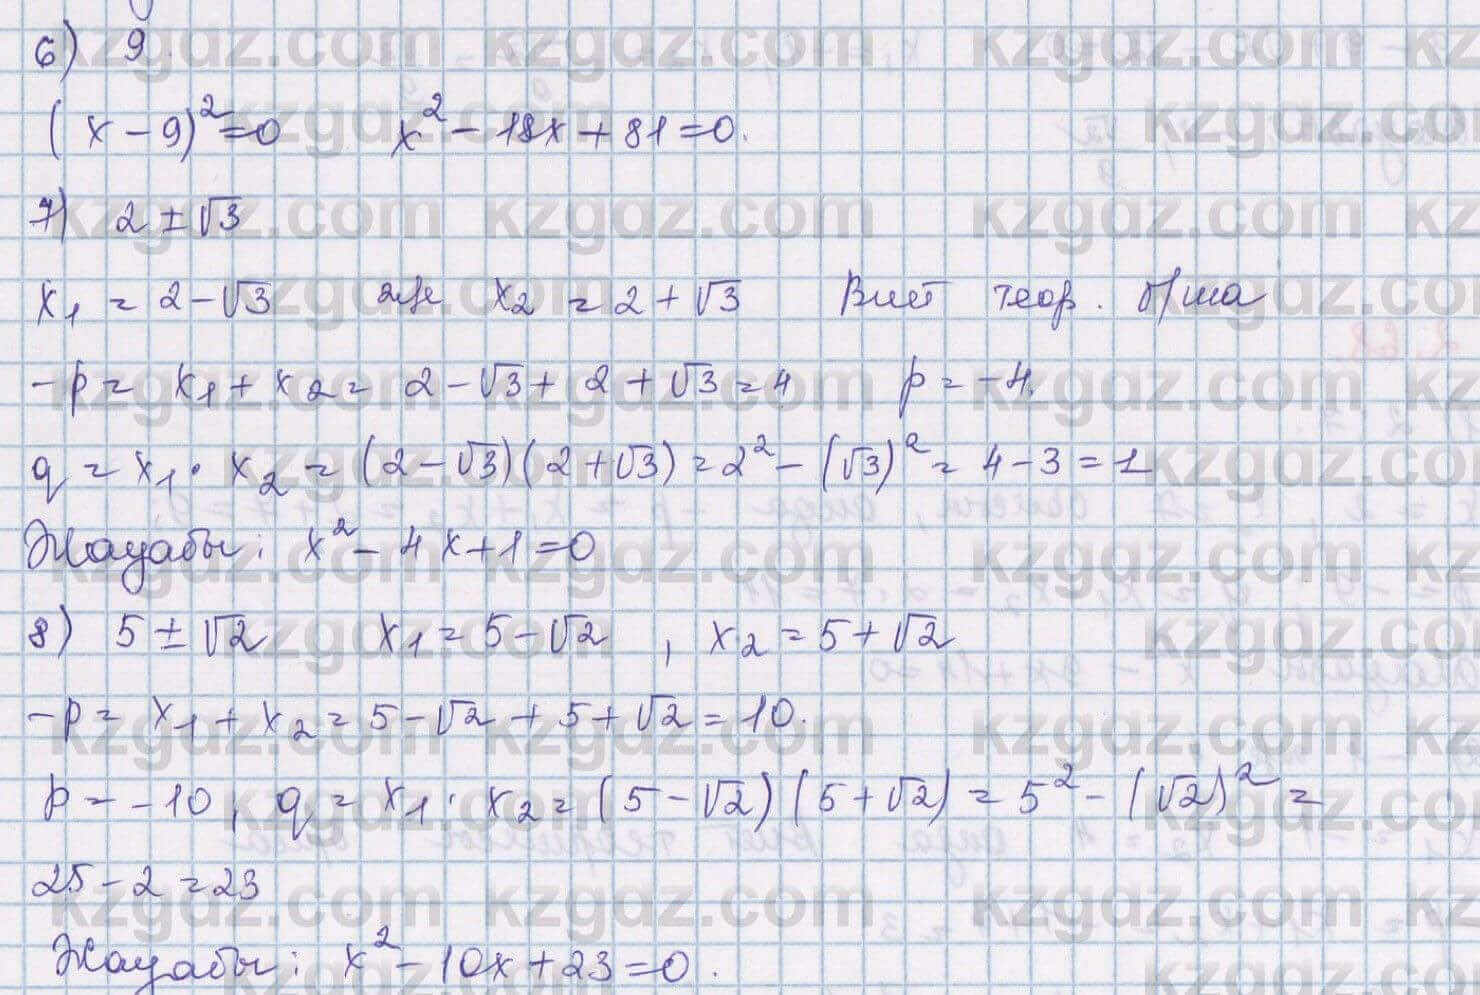 6) 9.
(x-9)²=0 x²-18x+81=0.
7) 2±√3
x₁=2-√3 және x₂=2+√3 Виет теор. б/ша
-p=x₁+x₂=2-√3+2+√3=4 p=-4.
q=x₁·x₂=(2-√3)(2+√3)=2²-(√3)²=4-3=1
Жауабы: x²-4x+1=0
8) 5±√2 x₁=5-√2, x₂=5+√2
-p=x₁+x₂=5-√2+5+√2=10.
p=-10, q=x₁·x₂=(5-√2)(5+√2)=5²-(√2)²=
25-2=23
Жауабы: x²-10x+23=0.
kzgdz.com